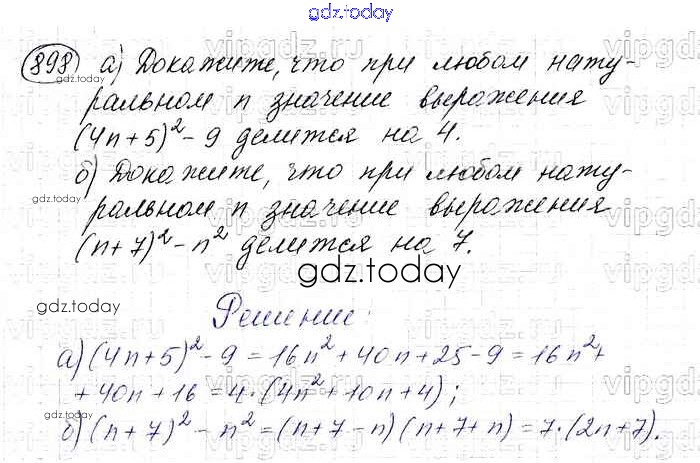 gdz.today
898 а) Докажите, что при любом нату-
ральном n значение выражения
(4n+5)² - 9 делится на 4.
б) Докажите, что при любом нату-
ральном n значение выражения
(n+7)² - n² делится на 7.
gdz.today
Решение:
а) (4n+5)² - 9 = 16n² + 40n + 25 - 9 = 16n² +
+ 40n + 16 = 4·(4n² + 10n + 4);
б) (n+7)² - n² = (n+7-n)(n+7+n) = 7·(2n+7).